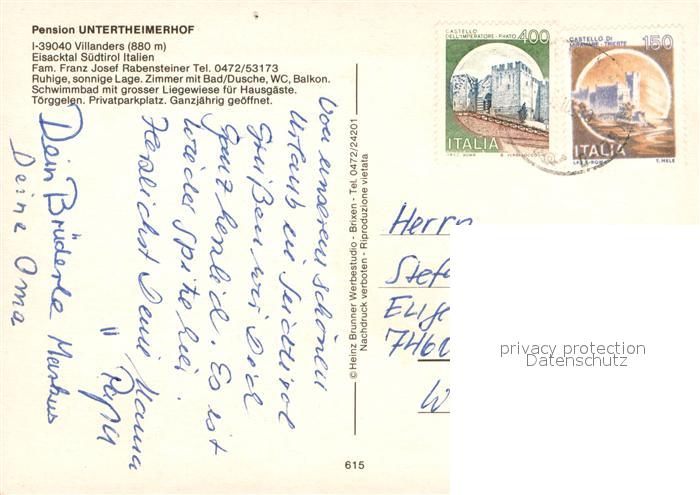 Pension UNTERTHEIMERHOF
I-39040 Villanders (880 m)
Eisacktal Südtirol Italien
Fam. Franz Josef Rabensteiner Tel. 0472/53173
Ruhige, sonnige Lage. Zimmer mit Bad/Dusche, WC, Balkon.
Schwimmbad mit grosser Liegewiese für Hausgäste.
Törggelen. Privatparkplatz. Ganzjährig geöffnet.
Von unserem schönen
Urlaub in Südtirol
Grüßen wir Dich
ganz herzlich. Es ist
wieder Spitze hier.
Herzlichst Deine Mama
" Papa
Dein Brüderle Markus
Deine Oma
© Heinz Brunner Werbestudio - Brixen - Tel. 0472/24201
Nachdruck verboten - Riproduzione vietata
615
CASTELLO
DELL'IMPERATORE - PRATO
400
ITALIA
CASTELLO DI
MIRAMARE - TRIESTE
150
ITALIA
T. MELE
Herrn
Stef
Elig
7460
W
privacy protection
Datenschutz